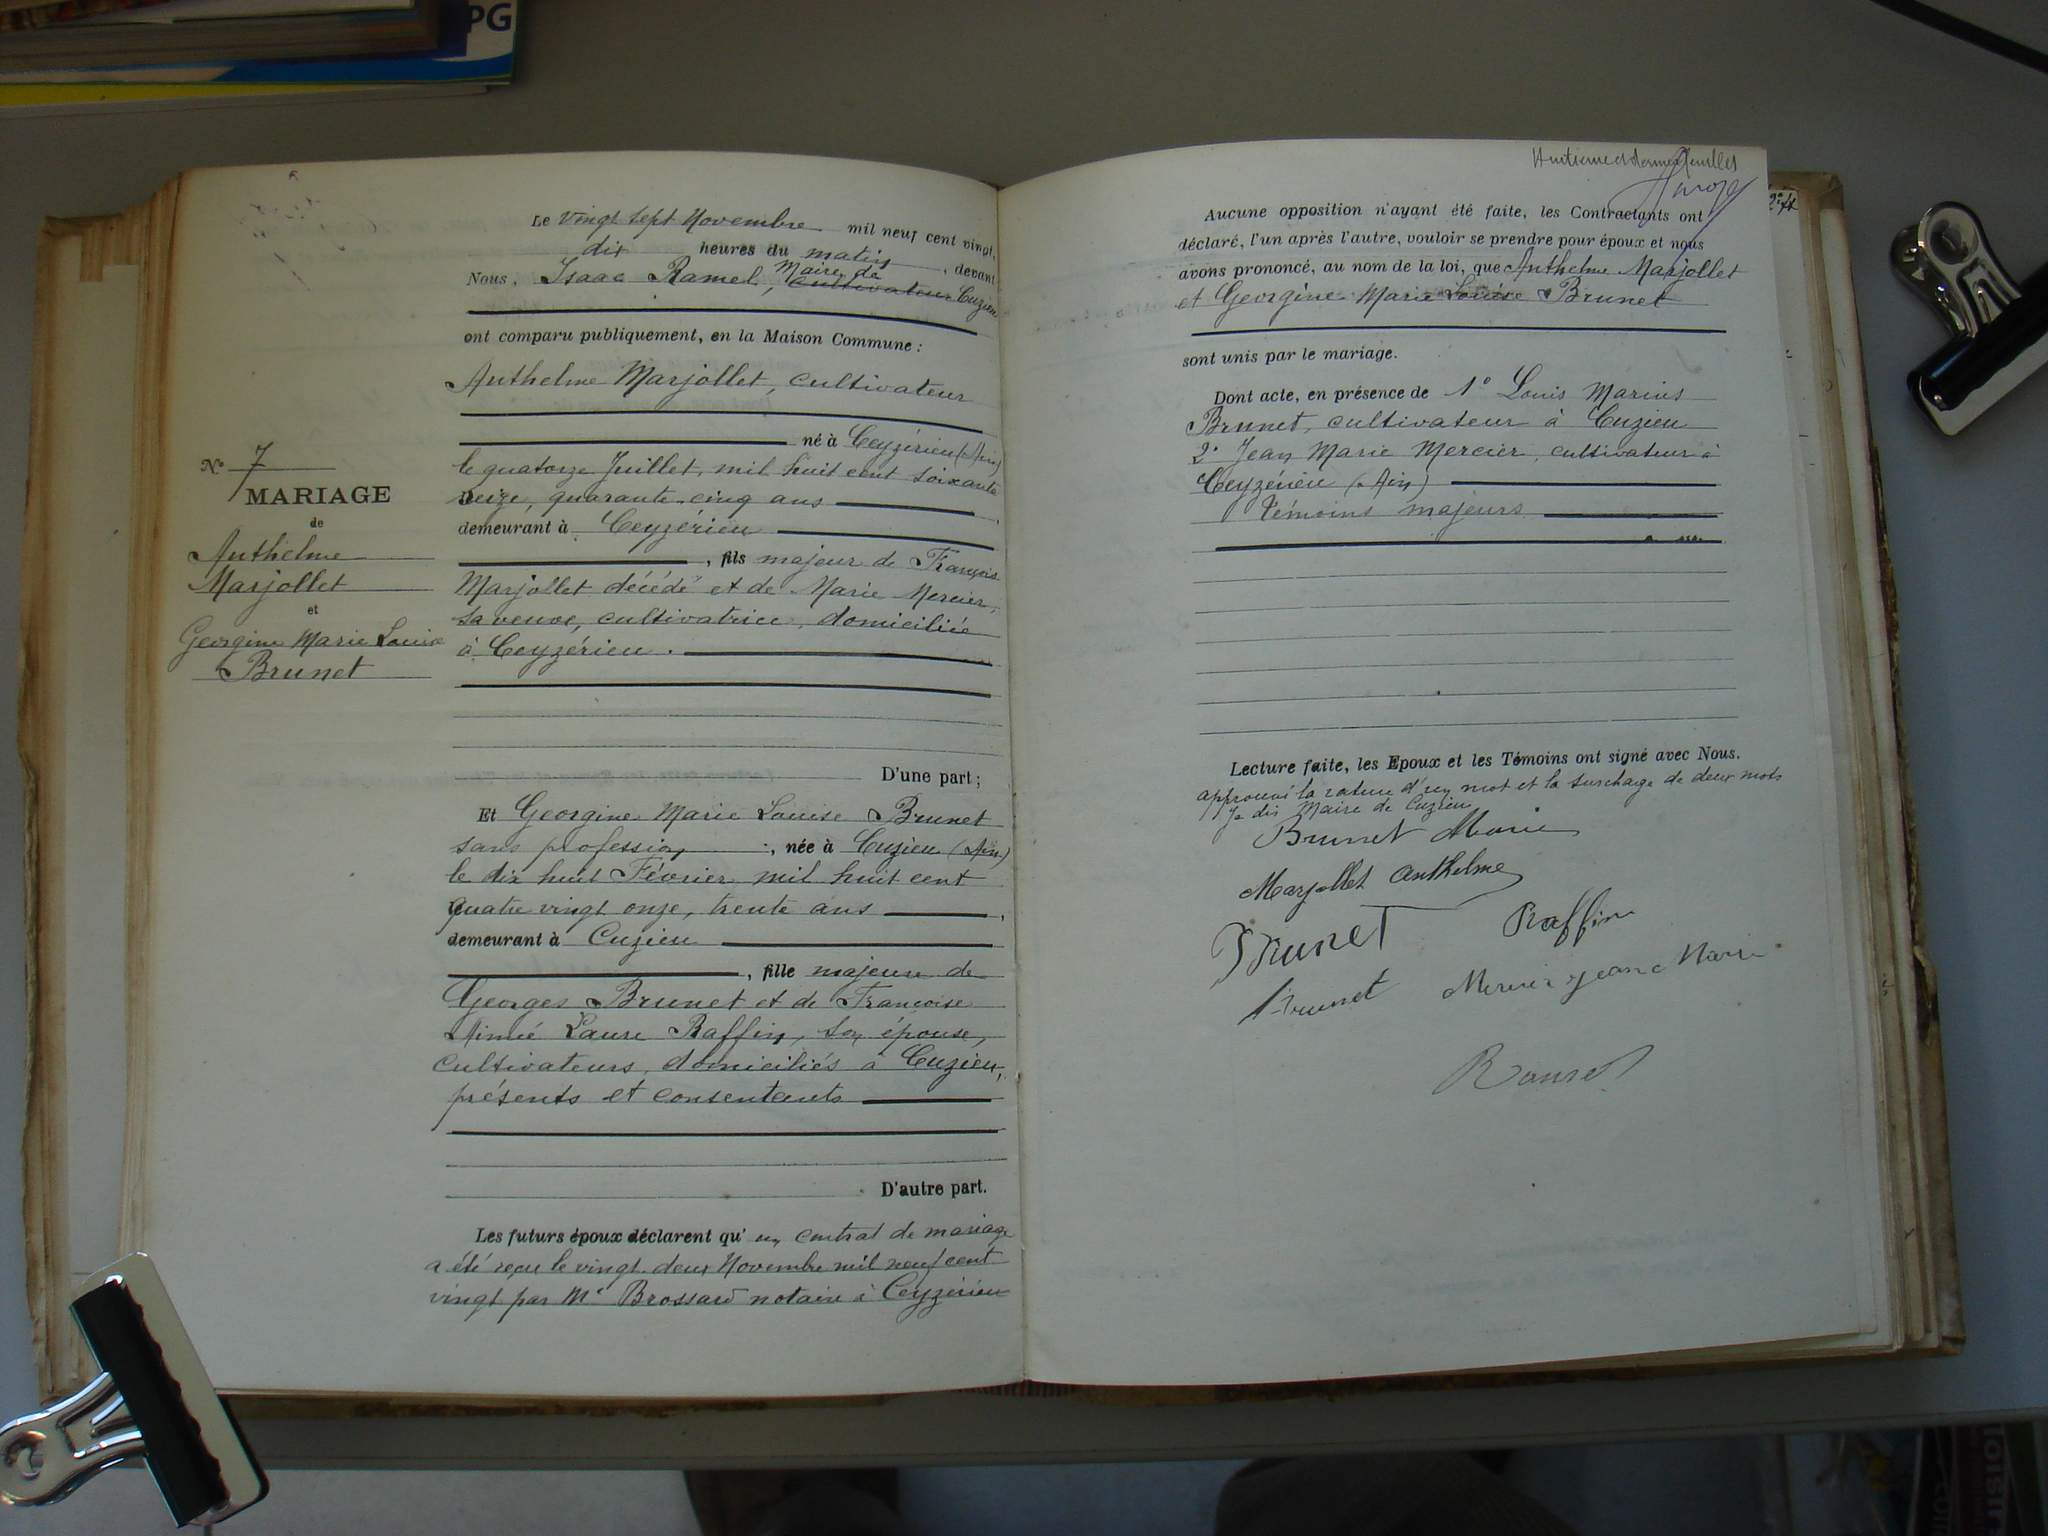 PG
N° 7
MARIAGE
de
Anthelme
Marjollet
et
Georgine Marie Louise
Brunet
Le vingt sept Novembre mil neuf cent vingt,
dix heures du matin, devant
Maire de
Nous, Isaac Ramel, cultivateur Cuzieu
ont comparu publiquement, en la Maison Commune :
Anthelme Marjollet, cultivateur
né à Ceyzérieu (Ain)
le quatorze Juillet, mil huit cent soixante
seize, quarante-cinq ans
demeurant à Ceyzérieu
, fils majeur de François
Marjollet décédé et de Marie Mercier,
sa veuve, cultivatrice, domiciliée
à Ceyzérieu.
D'une part ;
Et Georgine Marie Louise Brunet
sans profession, née à Cuzieu (Ain)
le dix huit Février mil huit cent
quatre vingt onze, trente ans,
demeurant à Cuzieu
, fille majeure de
Georges Brunet et de Françoise
Aimée Laure Raffin, son épouse,
cultivateurs, domiciliés à Cuzieu,
présents et consentants
D'autre part.
Les futurs époux déclarent qu'un contrat de mariage
a été reçu le vingt deux Novembre mil neuf cent
vingt par Me Brossard notaire à Ceyzérieu
2e
Aucune opposition n'ayant été faite, les Contractants ont
déclaré, l'un après l'autre, vouloir se prendre pour époux et nous
avons prononcé, au nom de la loi, que Anthelme Marjollet
et Georgine Marie Louise Brunet
sont unis par le mariage.
Dont acte, en présence de 1° Louis Marius
Brunet, cultivateur à Cuzieu
2° Jean Marie Mercier, cultivateur à
Ceyzérieu (Ain)
Témoins majeurs
Lecture faite, les Epoux et les Témoins ont signé avec Nous.
approuvé la rature d'un mot et la surcharge de deux mots
Je dis Maire de Cuzieu
Brunet Marie
Marjollet Anthelme
Brunet Raffin
Brunet Mercier Jean Marie
Ramel